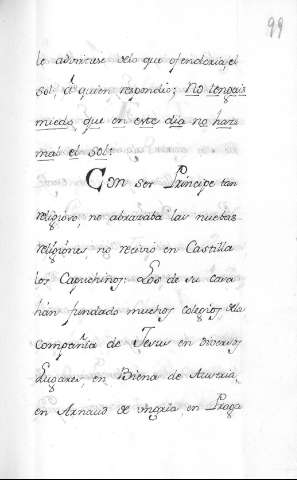 99
le advirtiese delo que ofenderia, el
sol, á quien respondio; no tengais
miedo, que en este dia no hara
mal el sol:
Con ser Principe tan
religioso, no abrazaba las nuebas
religiones, no recivió en Castilla
los Capuchinos: Los de su casa
hán fundado muchos colegios dela
Compañia de Jesus en diversos
Lugares, en Biena de Austria,
en Arnaud de vngria, en Praga